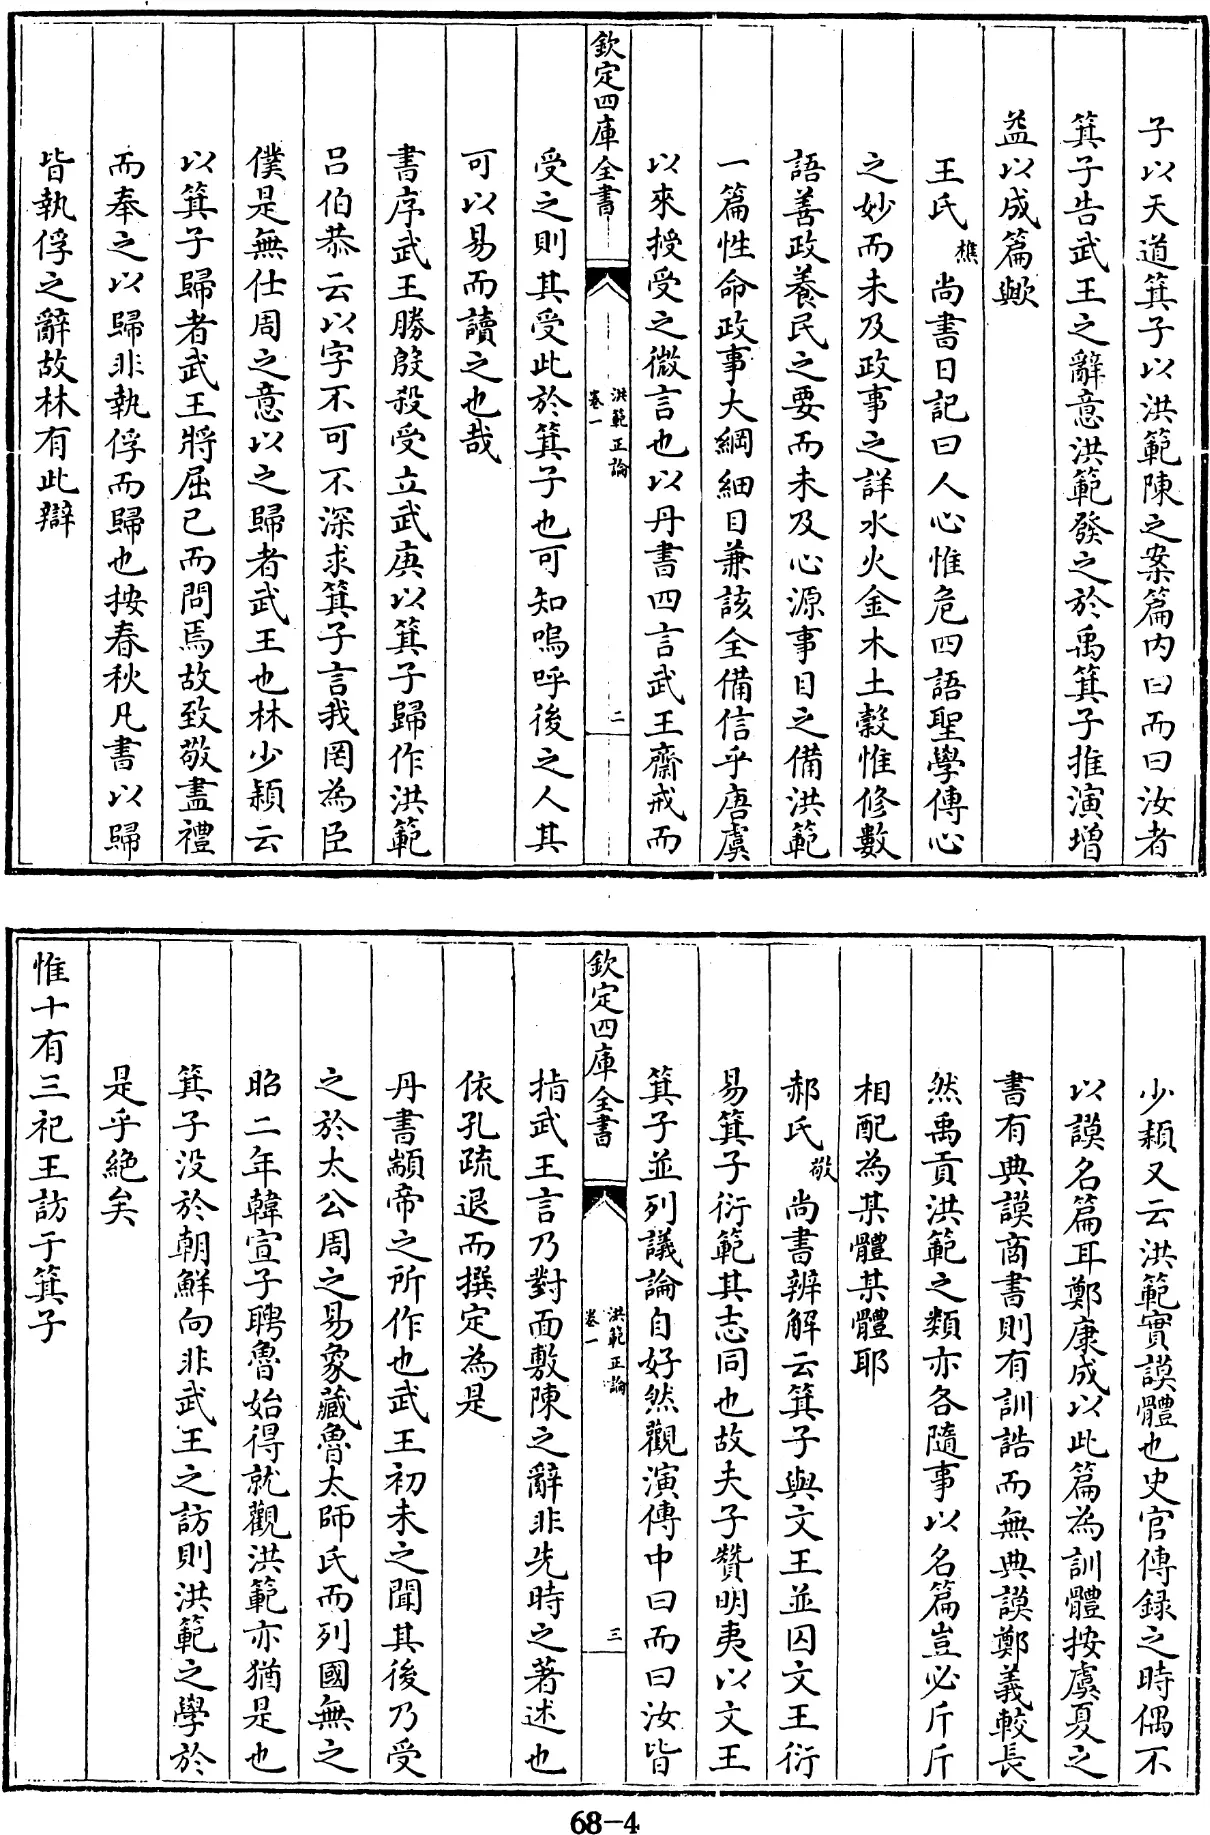 子以天道箕子以洪範陳之案篇内曰而曰汝者
箕子告武王之辭意洪範發之於禹箕子推演增
益以成篇歟
王氏樵尚書日記曰人心惟危四語聖學傳心
之妙而未及政事之詳水火金木土穀惟修數
語善政養民之要而未及心源事目之備洪範
一篇性命政事大綱細目兼該全備信乎唐虞
以來授受之微言也以丹書四言武王齋戒而
欽定四庫全書
洪範正論
卷一
二
受之則其受此於箕子也可知嗚呼後之人其
可以易而讀之也哉
書序武王勝殷殺受立武庚以箕子歸作洪範
吕伯恭云以字不可不深求箕子言我罔為臣
僕是無仕周之意以之歸者武王也林少穎云
以箕子歸者武王將屈已而問焉故致敬盡禮
而奉之以歸非執俘而歸也按春秋凡書以歸
皆執俘之辭故林有此辯
少穎又云洪範實謨體也史官傳録之時偶不
以謨名篇耳鄭康成以此篇為訓體按虞夏之
書有典謨商書則有訓誥而無典謨鄭義較長
然禹貢洪範之類亦各隨事以名篇豈必斤斤
相配為某體某體耶
郝氏敬尚書辨解云箕子與文王並囚文王衍
易箕子衍範其志同也故夫子贊明夷以文王
箕子並列議論自好然觀演傳中曰而曰汝皆
欽定四庫全書
洪範正論
卷一
三
指武王言乃對面敷陳之辭非先時之著述也
依孔疏退而撰定為是
丹書顓帝之所作也武王初未之聞其後乃受
之於太公周之易象藏魯太師氏而列國無之
昭二年韓宣子聘魯始得就觀洪範亦猶是也
箕子没於朝鮮向非武王之訪則洪範之學於
是乎絶矣
惟十有三祀王訪于箕子
68-4